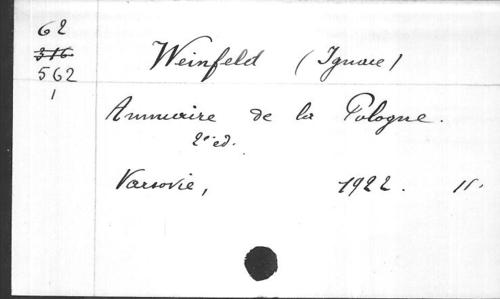 62
316
562
1
Weinfeld (Ignace)
Annuaire de la Pologne.
2e ed.
Varsovie, 1922.